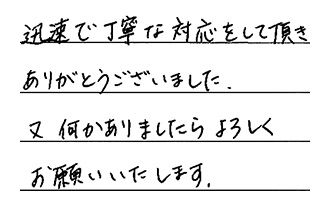 迅速で丁寧な対応をして頂き
ありがとうございました.
又 何かありましたら よろしく
お願いいたします.